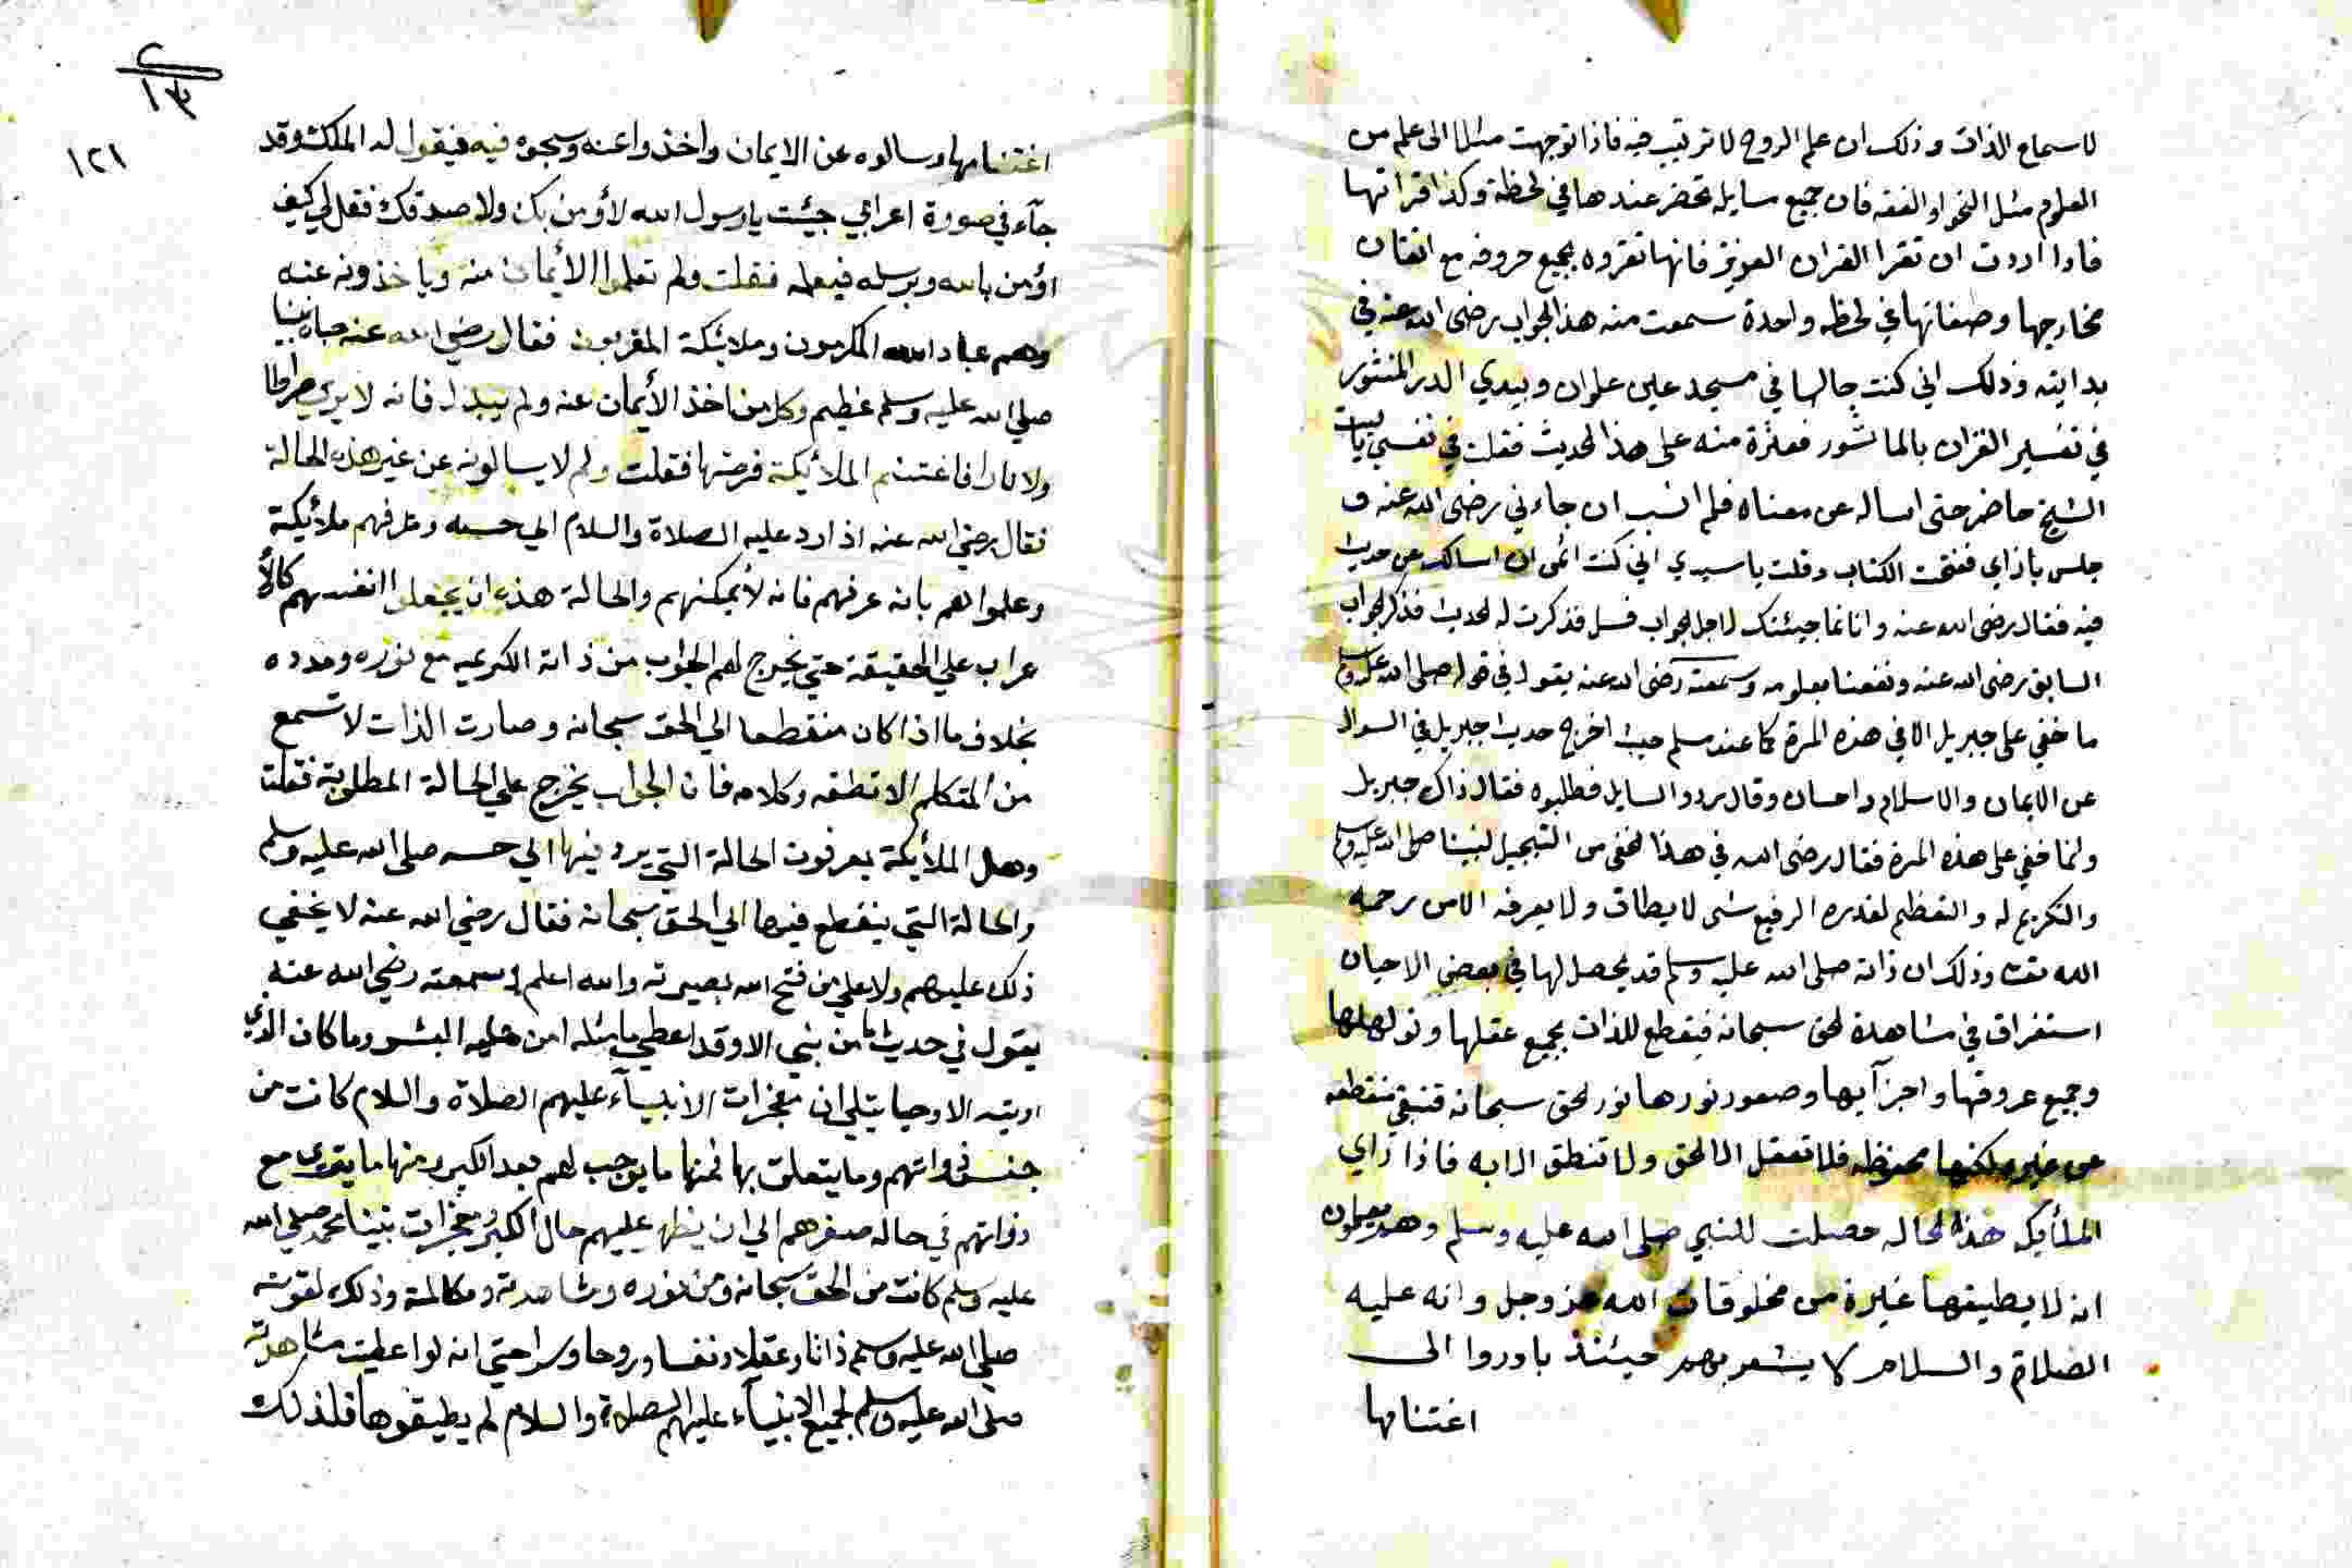 لاسماع الذات وذلك ان علم الروح لا ترتيب فيه فاذا توجهت مثلا الى علم من
العلوم مثل النحو او الفقه فان جميع مسايله تحضر عندها في لحظة وكذا قراتها
فاذا اردت ان تقرا القران العزيز فانها تقروه بجميع حروفه مع اتقان
مخارجها وصفاتها في لحظه واحدة سمعت منه هذا الجواب رضى الله عنه في
بدايته وذلك اني كنت جالسا في مسجد عين علوان وبيدي الدر المنثور
في تفسير القران بالماثور فعثرة منه على هذا الحديث فقلت في نفسي ياليت
الشيخ حاضر حتى اساله عن معناه فلم انشب ان جاءني رضى الله عنه و
جلس بازاي ففتحت الكتاب وقلت يا سيدي اني كنت اتمى ان اسالك عن حديث
فيه فقال رضى الله عنه وانا نما جيئتك لاجل الجواب فسل فذكرت له الحديث فذكر الجواب
السابق رضى الله عنه ونفعنا بعلومه وسمعته رضى الله عنه يقول في قوله صلى الله عليه وسلم
ما خفي على جبريل الا في هذه المرة كما عند مسلم حيث اخرج حديث جبريل في السوال
عن الايمان والاسلام واحسان وقال ردو السايل فطلبوه فقال ذاك جبريل
ولما خفي على هذه المرة فقال رضى الله في هذا الخفى من التبجيل لنبينا صلى الله عليه وسلم
والتكريم له والتعظيم لقدره الرفيع شى لا يطاق ولا يعرفه الا من رحمه
الله تعا وذلك ان ذاته صلى الله عليه وسلم قد يحصل لها في بعض الاحيان
استغراق في مشاهدة الحق سبحانه فيقطع للذات بجميع عقلها
وجميع عروقها واجزآيها وصعود نورها نور الحق سبحانه فتبقى منقطعه
عن غيره لكنها محفوظه فلا تعقل الا الحق ولا تنطق الا به فاذا راي
الملأيكه هذا الحاله حصلت للنبي صلى الله عليه وسلم وهم يعلمون
انه لا يطيقها غيرة من مخلوقات الله عز وجل وانه عليه
الصلاة والسلام لا يشعر بهم حيئنذ باوروا الى
اغتنامها
٢
١٣
١٢١
اغتنامها وسالوه عن الايمان واخذوا عنه وسجوه فيه فيقول له الملك وقد
جآء في صورة اعرابي جيئت يا رسول الله لأومن بك ولاصدقك فقل لي كيف
اؤمن بالله وبرسله فيعلمه فقلت ولم تعلموا الأيمان منه وياخذونه عنه
وهم عباد الله المكرمون وملائيكة المقربون فقال رضي الله عنه جاه نبينا
صلي الله عليه وسلم عظيم وكل من اخذ الأيمان عنه ولم يبدل فانه لا يري صراطا
ولا نارا فاغتنم الملأئيكة فرصتها فقلت ولم لا يسالونه عن غير هذه الحالة
فقال رضي الله عنه اذا رد عليه الصلاة والسلام الي حسه وعرفهم ملأئيكة
وعلموا هم بانه عرفهم فانه لأيمكنهم والحالة هذه ان يجعلوا انفسهم كالأ
عراب علي الحقيقة حتي يخرج لهم الجواب من ذاته الكريمه مع نوره ومدده
بخلاف ما اذا كان منقطعا الي الحق سبحانه وصارت الذات لا تسمع
من المتكلم الا نطقه وكلامه فان الجواب يخرج علي الحالة المطلوبة فقلت
وهل الملأئيكة يعرفون الحالة التي يرد فيها الي حسه صلى الله عليه وسلم
والحالة التي ينقطع فيها الي الحق سبحانه فقال رضي الله عنه لا يخفي
ذلك عليهم ولا علي من فتح الله بصيرته والله اعلم سمعته رضي الله عنه
يقول في حديث ما من نبي الا وقد اعطي ما مثله امن عليه البشر وما كان الذي
اوتيته الا وحيا يتلي ان معجزات الانبيآء عليهم الصلاة والسلام كانت من
جنس ذواتهم وما يتعلق بها فمنها ما يوجب لهم بعد الكبر ومنها ما يتقوى مع
ذواتهم في حاله صغرهم الي ان يظهر عليهم حال الكبر ومعجزات نبينا محمد صلي الله
عليه وسلم كانت من الحق سبحانه ومن نوره ومشاهدته ومكالمته وذلك لقوته
صلي الله عليه وسلم ذاتا وعقلا ونفسا وروحا وسرا حتي انه لو اعطيت مشاهدته
صلى الله عليه وسلم لجميع الانبيآء عليهم الصلاة والسلام لم يطيقوها فلذلك